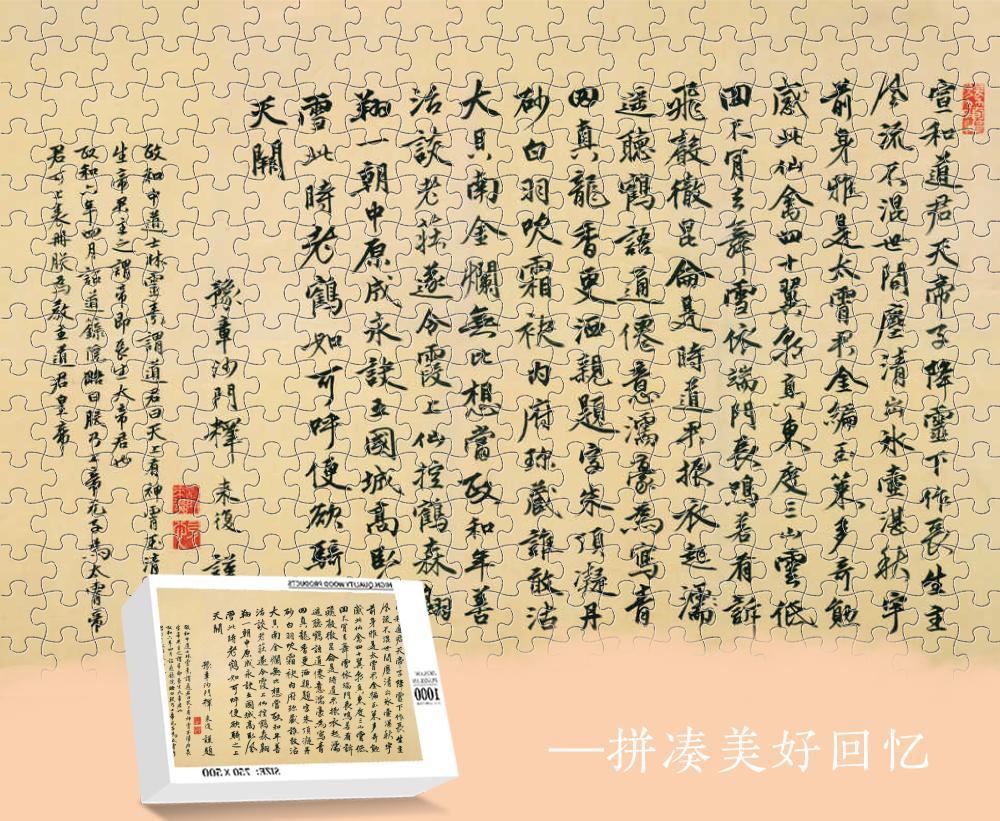 宣和道君天帝子降靈下作長生主
流不混世間塵清出冰壺湛秋宇
前身雅是太霄君金編玉策多奇勉
感此仙禽四十翼東度三山雲低
回不肯去舞雪依端門長鳴若有訴
飛聲徹昆侖是時道君振衣起濡
遥聽鶴語通僊意濡豪為寫青
田真龍香更洒親題字朱頂凝丹
砂白羽吹霜袂内府珎藏誰敢沽
大貝南金爛無比想當政和年善
治談老莊遂令霞上仙控鶴森翱
翔一朝中原成永訣五國城高臥
雪此時老鶴如可呼便欲騎
天闕
豫章沙門釋来復謹
政和中道士林靈素謂道君曰天上有神霄玉清
生帝君主之謂帝即長生大帝君也
政和六年四月諮道錄院略曰朕乃上帝元子為太霄帝
君可上表冊朕為教主道君皇帝
HIGH QUALITY WOOD PRODUCTS
1000
SIZE: 750 X 500
—拼凑美好回忆